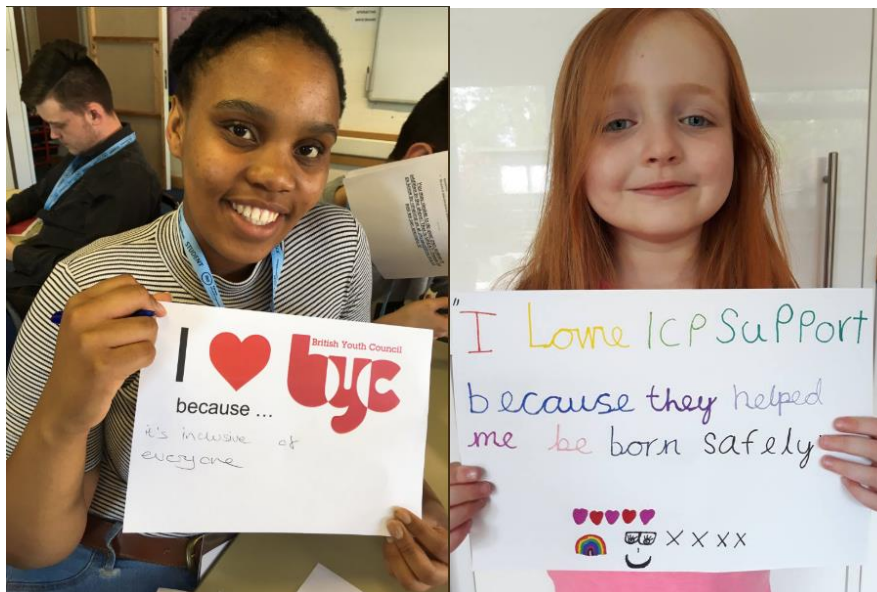 STUDENT
I
British Youth Council
byc
because ...
it's inclusive of
everyone
"I Lome ICP SuPPort
because they helped
me be born safely"
x x x x